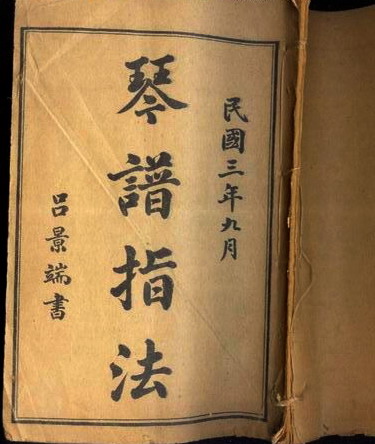 民國三年九月
琴譜指法
呂景端書